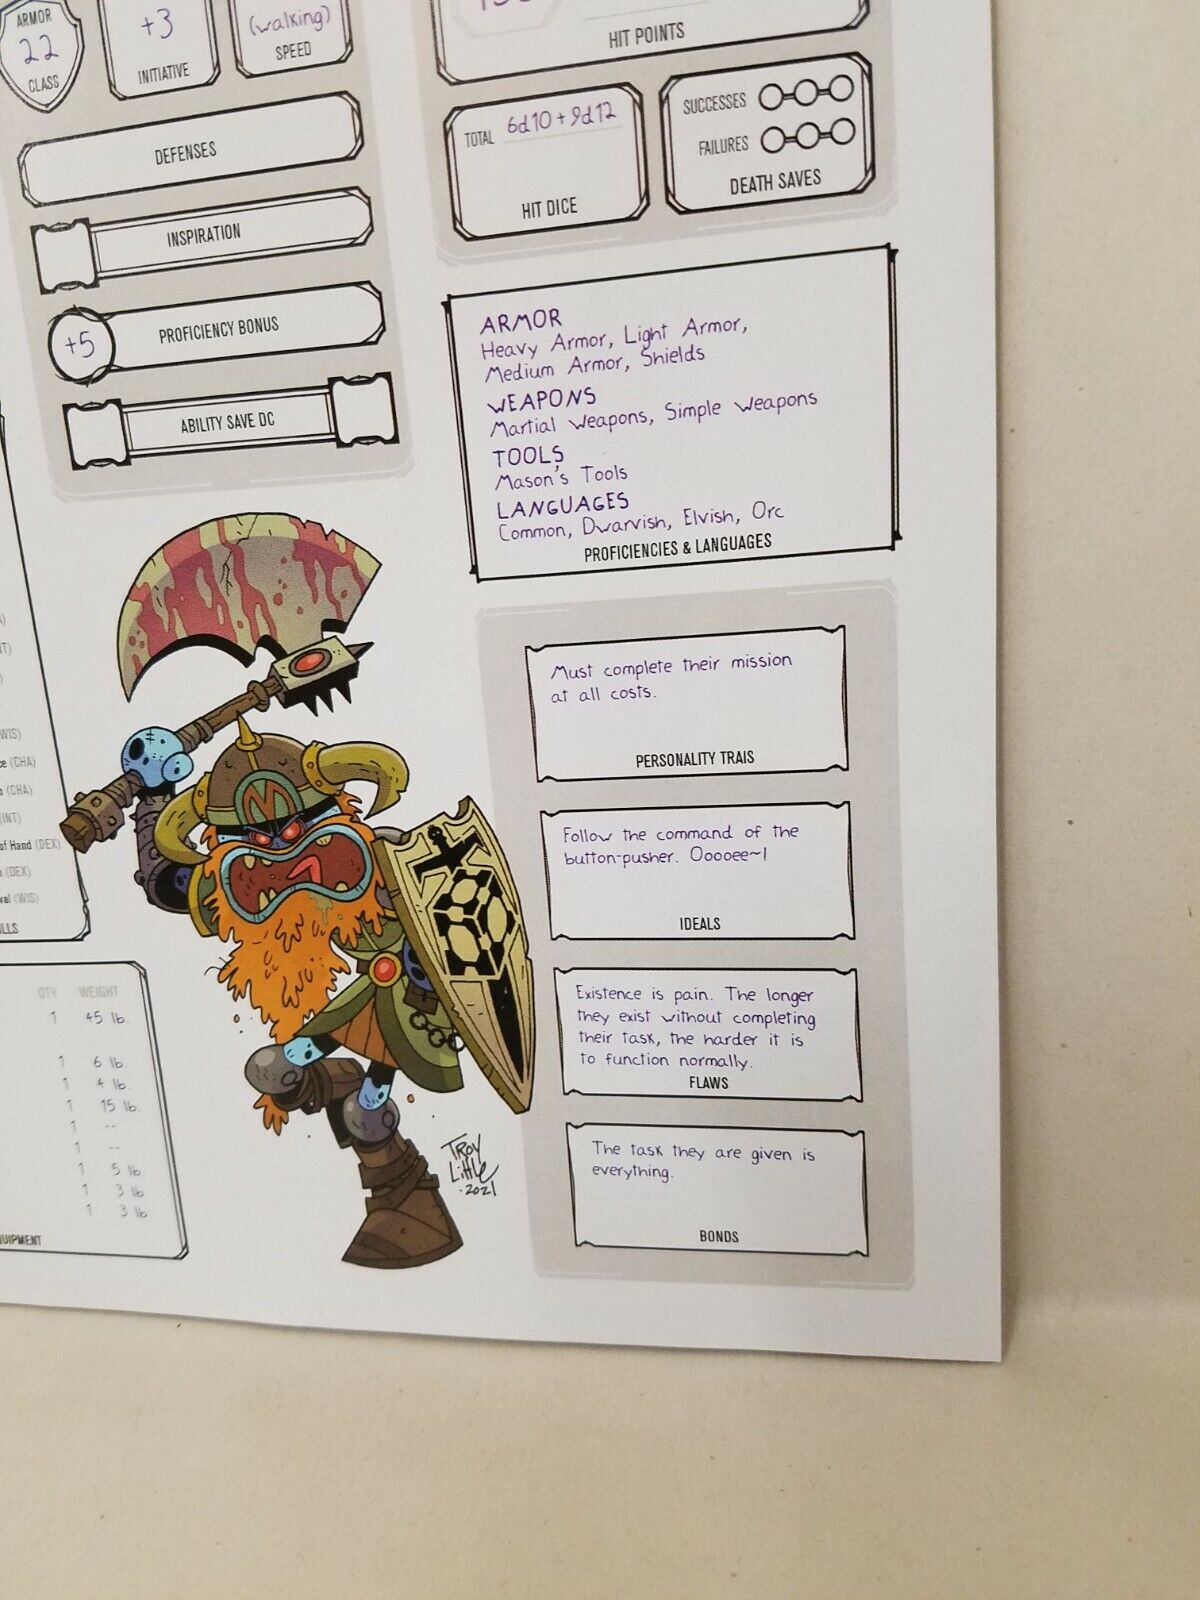 ARMOR
22
CLASS
+3
INITIATIVE
(walking)
SPEED
HIT POINTS
DEFENSES
INSPIRATION
+5
PROFICIENCY BONUS
ABILITY SAVE DC
TOTAL 6d10 + 9d12
HIT DICE
SUCCESSES
FAILURES
DEATH SAVES
ARMOR
Heavy Armor, Light Armor,
Medium Armor, Shields
WEAPONS
Martial Weapons, Simple Weapons
TOOLS
Mason's Tools
LANGUAGES
Common, Dwarvish, Elvish, Orc
PROFICIENCIES & LANGUAGES
Must complete their mission
at all costs.
PERSONALITY TRAIS
Follow the command of the
button-pusher. Ooooee~!
IDEALS
Existence is pain. The longer
they exist without completing
their task, the harder it is
to function normally.
FLAWS
The task they are given is
everything.
BONDS
(CHA)
(CHA)
(INT)
of Hand (DEX)
(DEX)
(WIS)
QTY WEIGHT
1 45 lb.
1 6 lb.
1 4 lb.
1 15 lb.
1 --
1 --
1 5 lb.
1 3 lb.
1 3 lb.
M
TROY
LITTLE
.2021